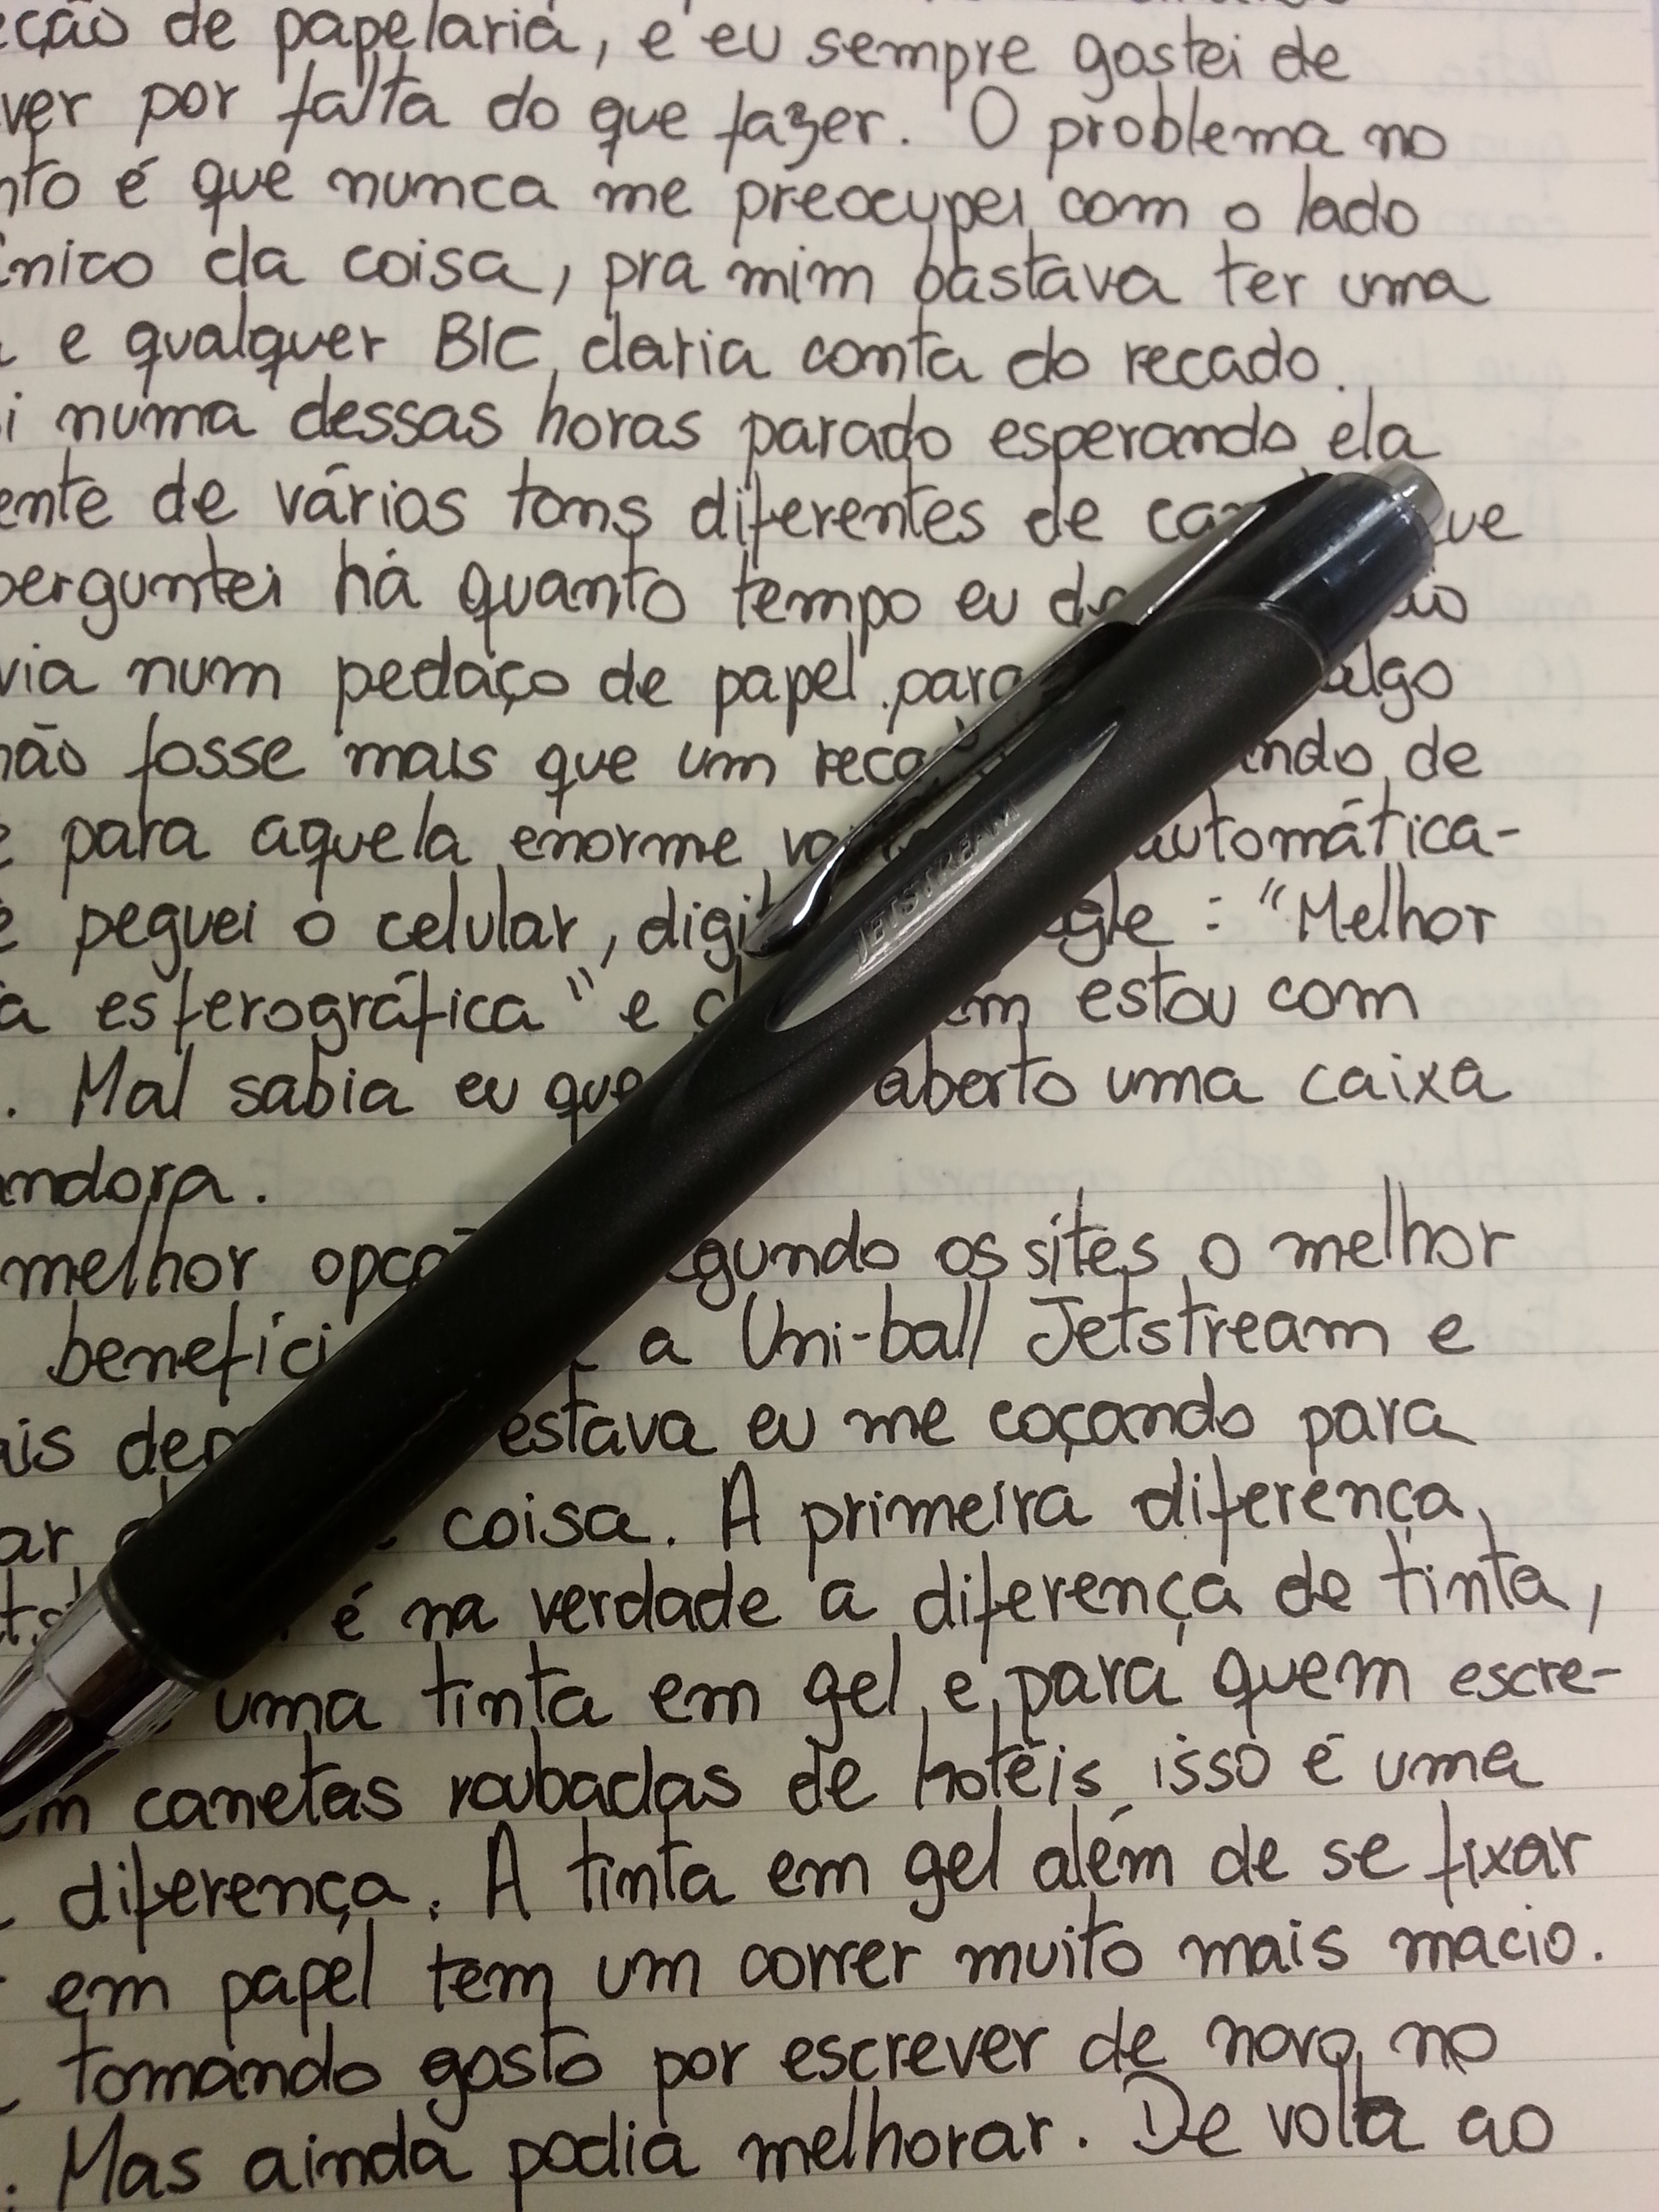 de papelaria, e eu sempre gostei de
por falta do que fazer. O problema no
é que nunca me preocupei com o lado
da coisa, pra mim bastava ter uma
e qualquer BIC daria conta do recado.
numa dessas horas parado esperando ela
de vários tons diferentes de
perguntei há quanto tempo eu
num pedaço de papel para algo
não fosse mais que um
de
para aquela enorme automática-
peguei o celular, : "Melhor
esferográfica" e estou com
. Mal sabia eu que aberto uma caixa
melhor os sites o melhor
a Uni-ball Jetstream e
estava eu me coçando para
coisa. A primeira diferença
é na verdade a diferença de tinta,
uma tinta em gel e para quem escre-
canetas roubadas de hotéis isso é uma
diferença. A tinta em gel além de se fixar
em papel tem um correr muito mais macio.
tomando gosto por escrever de novo no
. Mas ainda podia melhorar. De volta ao
JETSTREAM